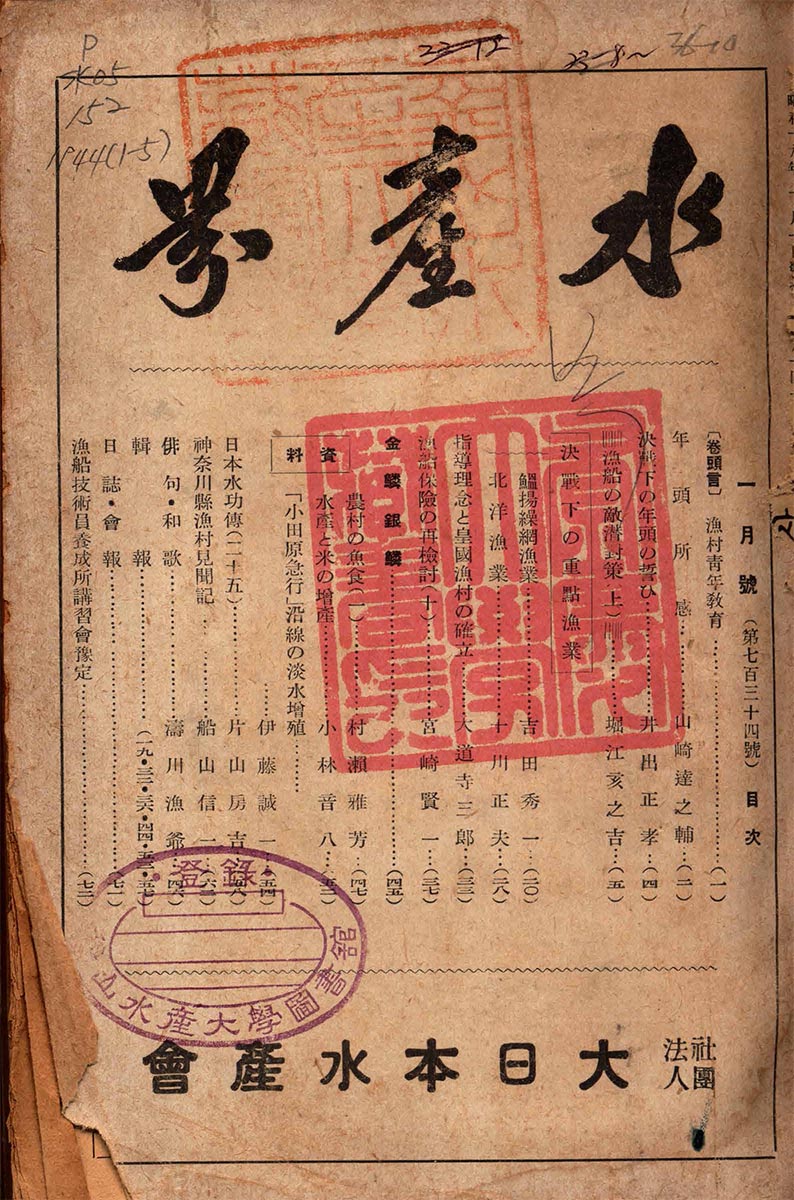 P
水05
152
1944(1-5)
22-12
23-8~
36-10
水産界
一月號(第七百三十四號)目次
〔卷頭言〕漁村青年教育……(一)
年頭所感……山崎達之輔…(二)
決戰下の年頭の誓ひ……井出正孝…(四)
漁船の敵潜對策(上)……堀江亥之吉…(五)
決戰下の重點漁業
鰮揚繰網漁業……吉田秀一…(二〇)
北洋漁業……十川正夫…(二八)
指導理念と皇國漁村の確立……大道寺三郎…(三三)
漁船保險の再檢討(十)……宮崎賢一…(三七)
金鱗銀鱗……(四五)
資料
農村の魚食(一)……村瀬雅芳…(四七)
水產と米の增產……小林音八…(五二)
「小田原急行」沿線の淡水增殖……
伊藤誠一…(五四)
日本水功傳(二十五)……片山房吉…(五八)
神奈川縣漁村見聞記……船山信一…(六一)
俳句・和歌……濤川漁爺…(四六)
輯報……(一九・三二・三六・四四・五三・五七)
日誌・會報……(七一)
漁船技術員養成所講習會豫定……(七二)
登錄
山水産大學圖書館
社團法人
大日本水産會